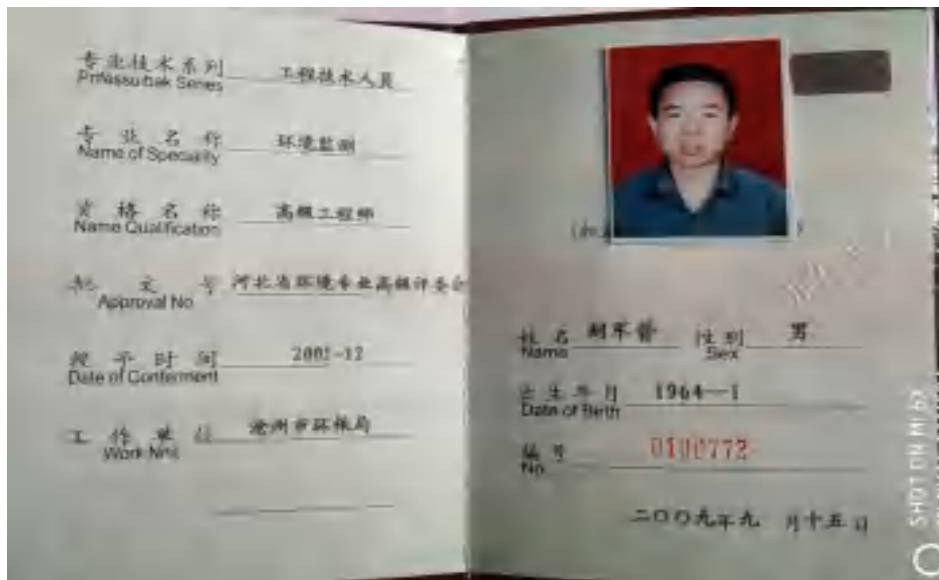 专业技术系列 工程技术人员
Professional Series
专业名称 环境监测
Name of Speciality
资格名称 高级工程师
Name Qualification
批文号 河北省环境专业高级评委会
Approval No
授予时间 2001-12
Date of Conferment
工作单位 沧州市环保局
Work
姓名 性别 男
Name Sex
出生年月 1964-1
Date of Birth
编号 0100772
No.
二〇〇九年九月十五日
SHOT ON MI 6X